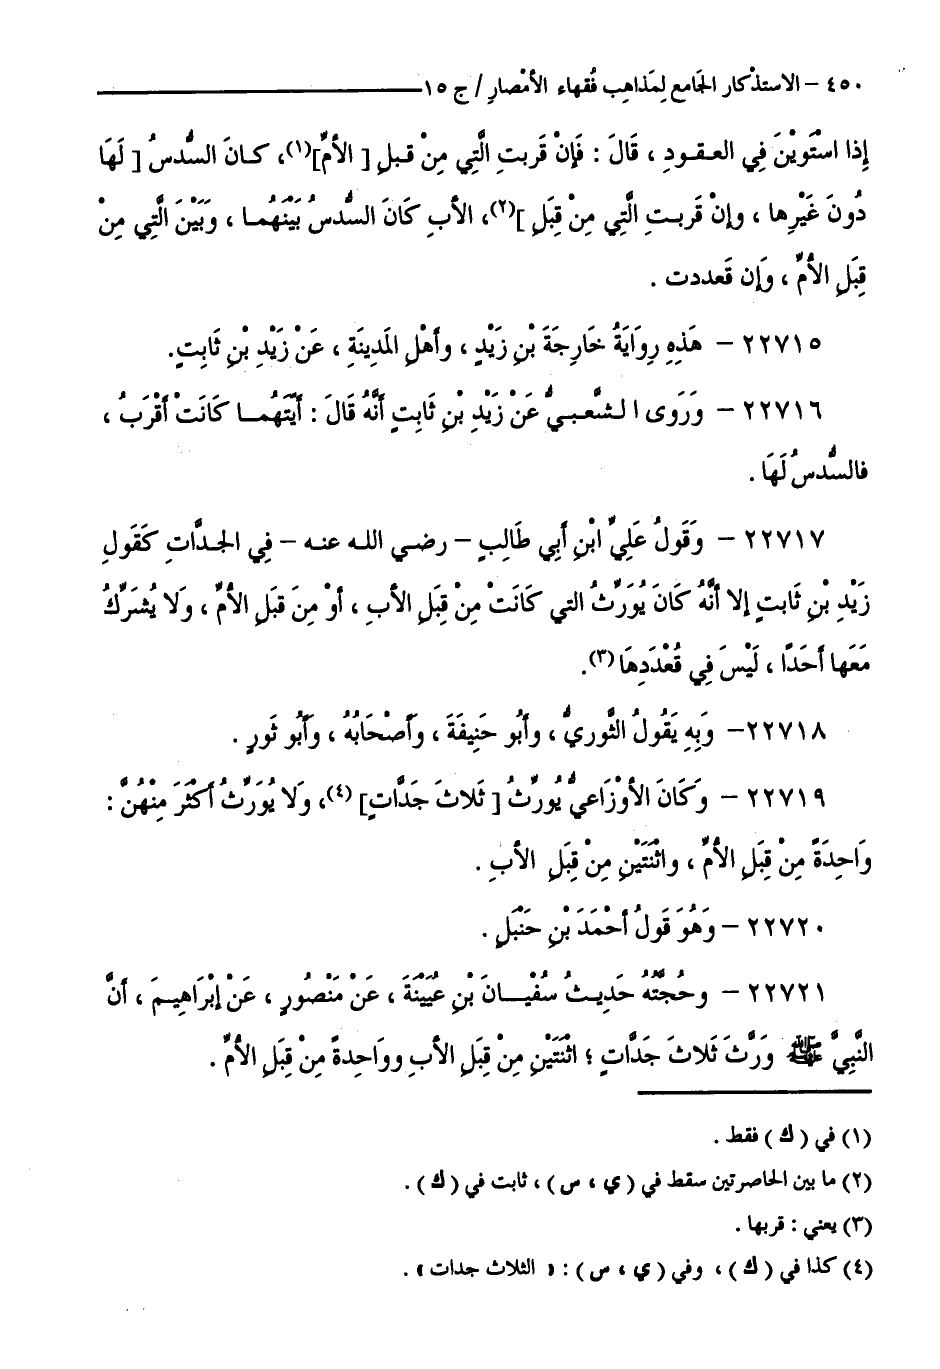 ٤٥٠ – الاستذْكار الجَامع لِمَذاهِب فُقهاء الأمْصارِ / ج ١٥
إِذا اسْتَوَيْنَ فِي العقودِ ، قَالَ : فَإِنْ قَربت الَّتِي مِنْ قبلِ [ الأمِّ](١)، كانَ السُّدسُ [ لَهَا
دُونَ غَيْرِها ، وإنْ قَربتِ الَّتِي مِنْ قِبَلِ ](٢)، الأب كَانَ السُّدُسُ بَيْنَهُما ، وَبَيْنَ الَّتِي مِنْ
قِبَلِ الأُمِّ ، وَإن قَعددت .
٢٢٧١٥ – هَذِهِ رِوَايَةُ خَارِجَةَ بْنِ زَيْدٍ ، وأَهْلِ المَدِينَةِ ، عَنْ زَيْدِ بْنِ ثَابِتٍ.
٢٢٧١٦ – وَرَوَى الشَّعبيُّ عَنْ زَيْدِ بْنِ ثَابتٍ أَنَّهُ قَالَ : أَيَّتَهُما كَانَتْ أَقْرَبُ ،
فالسُّدسُ لَهَا .
٢٢٧١٧ – وَقَولُ عَلِيِّ ابْنِ أَبِي طَالِبٍ – رضي الله عنه – فِي الجدَّاتِ كَقَولِ
زَيْدِ بْنِ ثَابتٍ إلا أَنَّهُ كَانَ يُوَرِّثُ التي كَانَتْ مِنْ قِبَلِ الأبِ ، أوْ مِنَ قبَلِ الأمِّ ، وَلا يُشَرِّكُ
مَعَها أَحَدًا ، لَيْسَ فِي قُعْدَدِهَا (٣).
٢٢٧١٨– وَبِهِ يَقُولُ الثَّوريُّ ، وأَبُو حَنِيفَةَ ، وَأَصْحَابُهُ ، وَأَبُو ثَورٍ .
٢٢٧١٩ – وَكَانَ الأوْزَاعيُّ يُورِّثُ [ ثَلاثَ جَدَّاتٍ] (٤)، وَلا يُوَرِّثُ أَكْثَرَ مِنْهُنَّ :
وَاحِدَةً مِنْ قِبَلِ الأمِّ ، واثْنَتَيْنِ مِنْ قِبَلِ الأبِ .
٢٢٧٢٠ – وَهُوَ قَولُ أَحْمَدَ بْنِ حَنْبَلٍ .
٢٢٧٢١ – وحُجَّتُهُ حَدِيثُ سُفْيانَ بْنِ عُيَيْنَةَ ، عَنْ مَنْصُورٍ ، عَنْ إِبْرَاهِيمَ ، أَنَّ
النَّبِيَّ ﷺ وَرَّثَ ثَلاثَ جَدَّاتٍ ؛ اثْنَتَيْنِ مِنْ قِبَلِ الأبِ ووَاحِدةً مِنْ قِبَلِ الأمِّ .
(١) في ( ك ) فقط .
(٢) ما بين الحاصرتين سقط في ( ي ، س ) ، ثابت في ( ك ) .
(٣) يعني : قربها .
(٤) كذا في ( ك ) ، وفي ( ي ، س ) : « الثلاث جدات » .